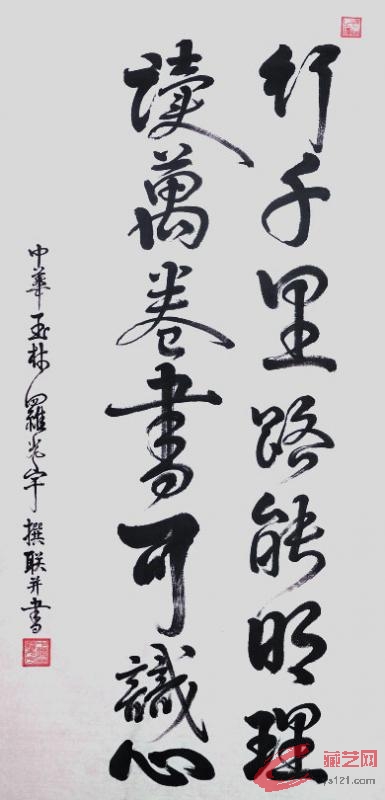 行千里路能明理
讀萬卷書可識心
中華玉林羅光宇撰联并書
藏艺网